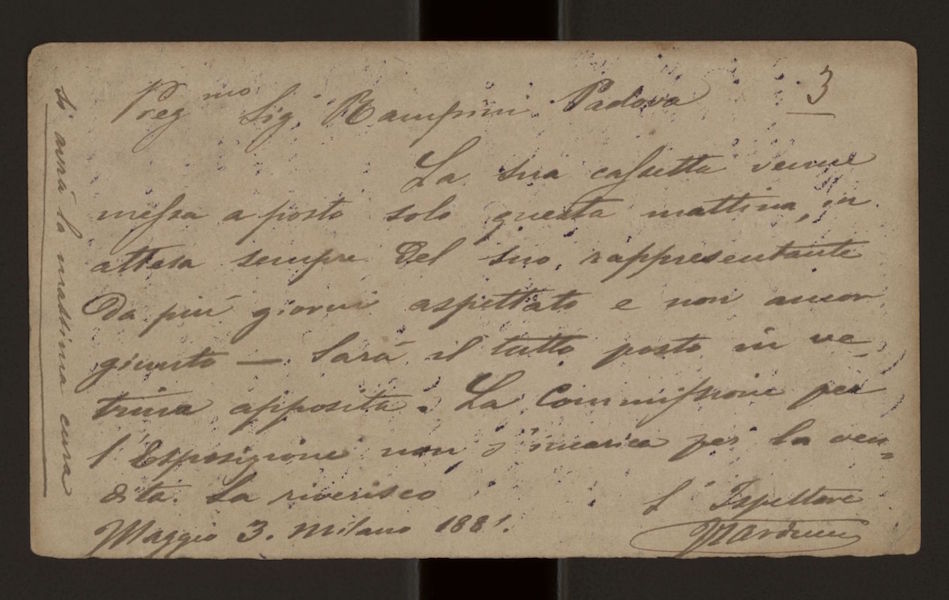 3
Pregmo Sig. Rampini Padova
La sua cassetta venne
messa a posto solo questa mattina, in
attesa sempre del suo rappresentante
da più giorni aspettato e non ancor
giunto — Sarà il tutto posto in ve-
trina apposita. La Commissione per
l'Esposizione non s'incarica per la ven=
dita. La riverisco
L'Ispettore
Maggio 3. Milano 1881.
Si avrà la massima cura